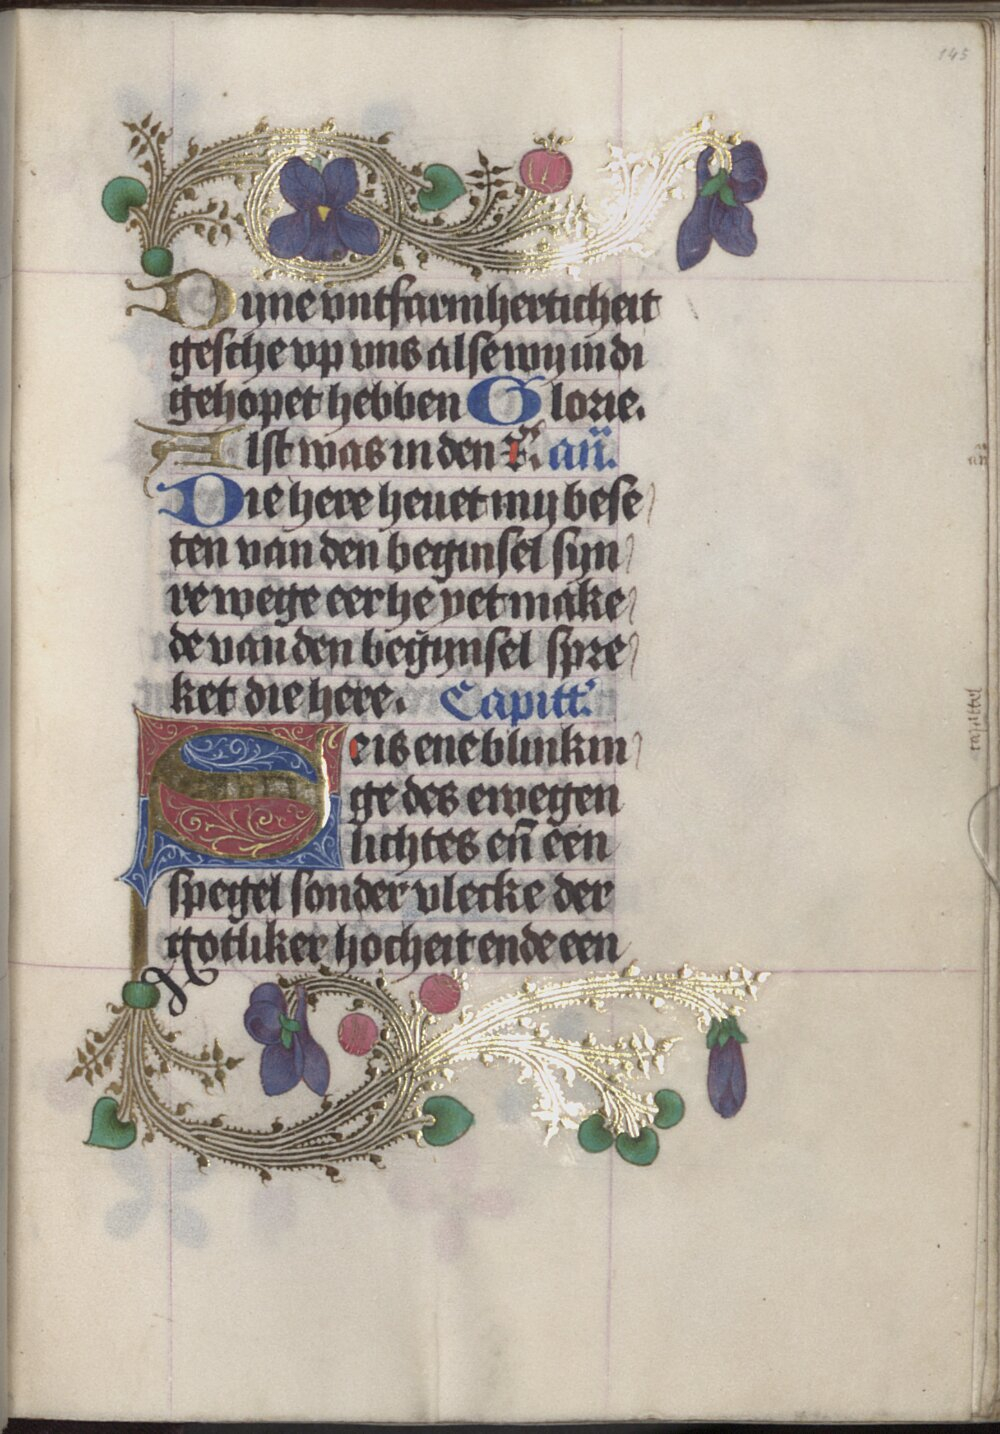 145
Dyne untfarmherticheit
gesche up uns alse wy in di
gehopet hebben Glorie.
Alst was in den aū.
Die here hevet my bese
ten van den beginsel syn
re wege eer he yet make
de van den begynsel spre
ket die here. Capitt'
Se is ene blinkin
ge des ewegen
lichtes eñ een
spegel sonder vlecke der
gotliker hocheit ende een
capittel